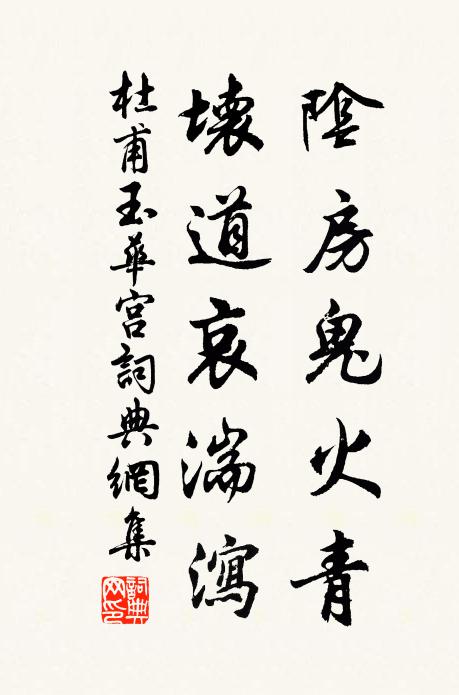 陰房鬼火青
壞道哀湍瀉
杜甫玉華宮詞典網集
詞典网印